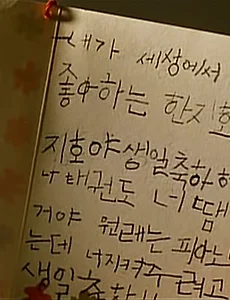 내가 세상에서
좋아하는 한지호
지호야 생일축하
나 태권도 너 땜
거야 원래는 피아노
는데 너지켜주려고
생일축하